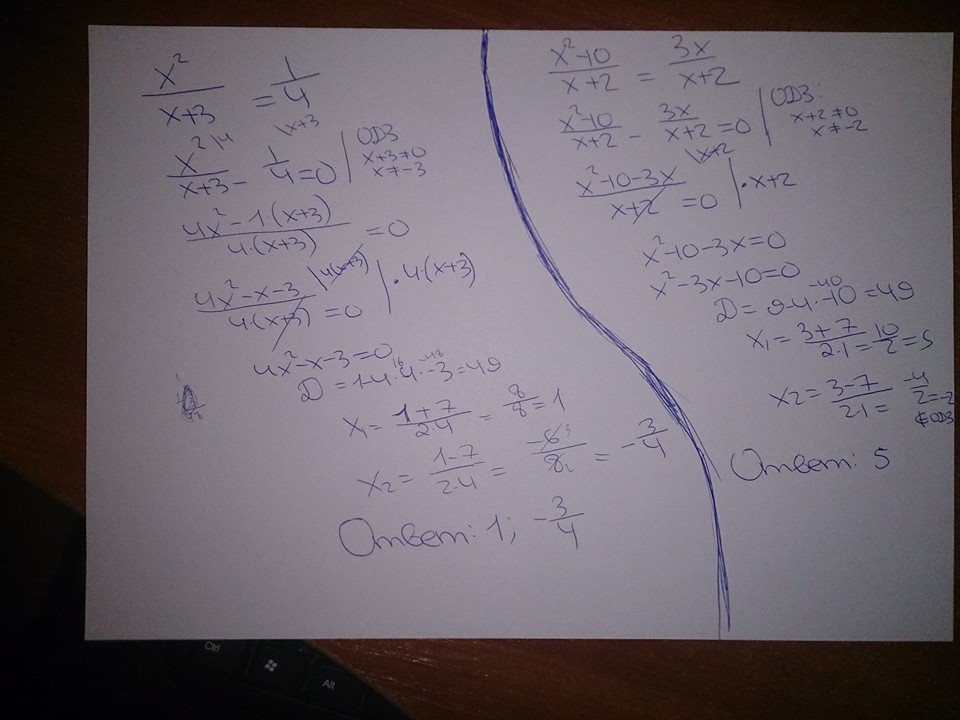 x²/(x+3) = 1/4
x² \4/(x+3) - 1/4 \x+3 = 0 | ОДЗ
x+3≠0
x≠-3
(4x²-1(x+3))/(4·(x+3)) = 0
(4x²-x-3)/(4·(x+3)) \4(x+3) = 0 | ·4·(x+3)
4x²-x-3=0
D = 1-4·4·-3=49
16 -48
x₁= (1+7)/(2·4) = 8/8 = 1
x₂= (1-7)/(2·4) = -6 3/8 = -3/4
Ответ: 1; -3/4
(x²-10)/(x+2) = 3x/(x+2)
(x²-10)/(x+2) - 3x/(x+2) = 0 | ОДЗ:
x+2≠0
x≠-2
\x+2
(x²-10-3x)/(x+2) = 0 | ·x+2
x²-10-3x=0
x²-3x-10=0
D = 9-4·-10=49
-40
x₁= (3+7)/(2·1) = 10/2 = 5
x₂= (3-7)/(2·1) = -4/2 = -2
∉ ОДЗ
Ответ: 5
Ctrl
Alt